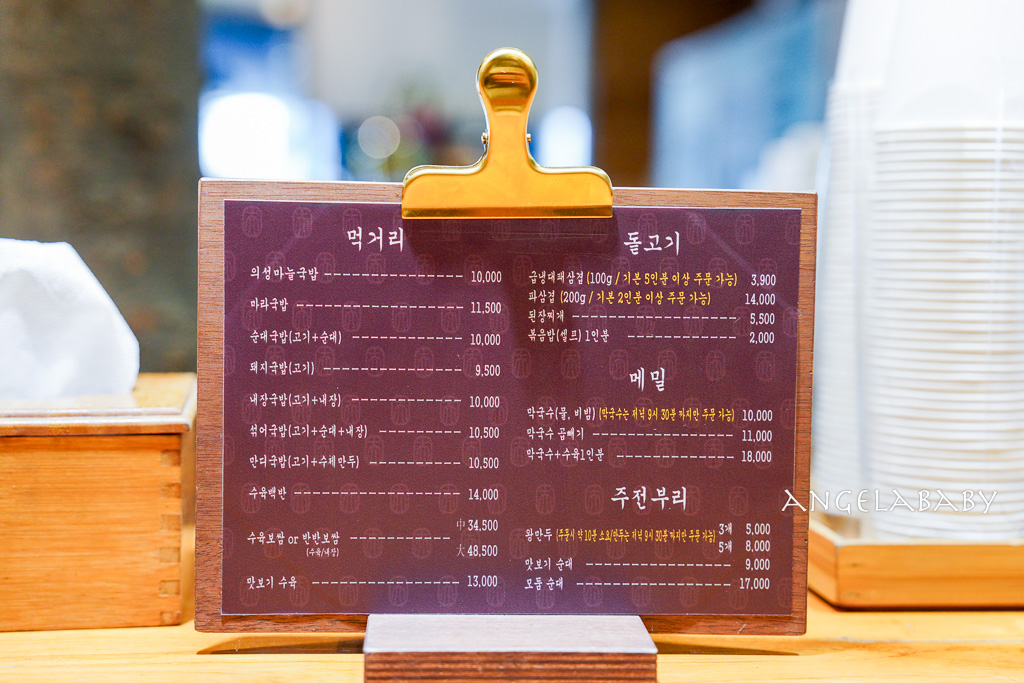 먹거리
의성마늘국밥 10,000
마라국밥 11,500
순대국밥(고기+순대) 10,000
돼지국밥(고기) 9,500
내장국밥(고기+내장) 10,000
섞어국밥(고기+순대+내장) 10,500
만디국밥(고기+수제만두) 10,500
수육백반 14,000
수육보쌈 or 반반보쌈 中 34,500
(수육/내장) 大 48,500
맛보기 수육 13,000
돌고기
급냉대패삼겹 (100g / 기본 5인분 이상 주문 가능) 3,900
파삼겹 (200g / 기본 2인분 이상 주문 가능) 14,000
된장찌개 5,500
볶음밥(셀프) 1인분 2,000
메밀
막국수(물, 비빔) (막국수는 저녁 9시 30분 까지만 주문 가능) 10,000
막국수 곱빼기 11,000
막국수+수육1인분 18,000
주전부리
왕만두 (주문시 약 10분 소요/만두는 저녁 9시 30분 까지만 주문가능) 3개 5,000
5개 8,000
맛보기 순대 9,000
모둠 순대 17,000
ANGELABABY